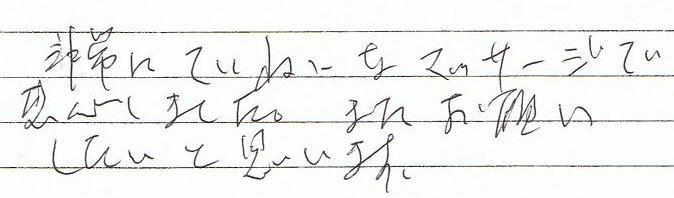 非常にていねいなマッサージで
しました。またお願い
したいと思います。